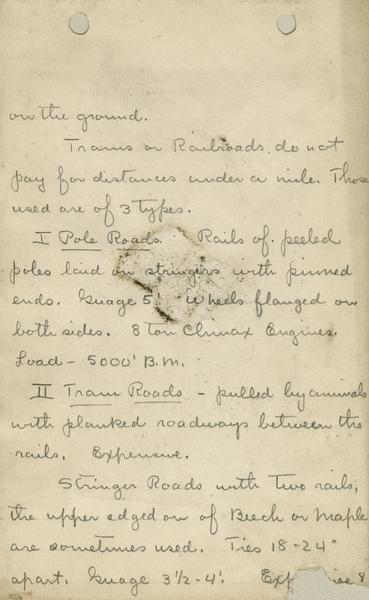 on the ground.
Trams or Railroads do not
pay for distances under a mile. Those
used are of 3 types.
I Pole Roads. Rails of peeled
poles laid on stringers with pinned
ends. Guage 5' Wheels flanged on
both sides. 8 ton Climax Engines.
Load - 5000' B.M.
II Tram Roads - pulled by animals
with planked roadways between the
rails. Expensive.
Stringer Roads with two rails,
the upper edged on of Beech or Maple
are sometimes used. Ties 18-24"
apart. Guage 3 1/2 - 4'.